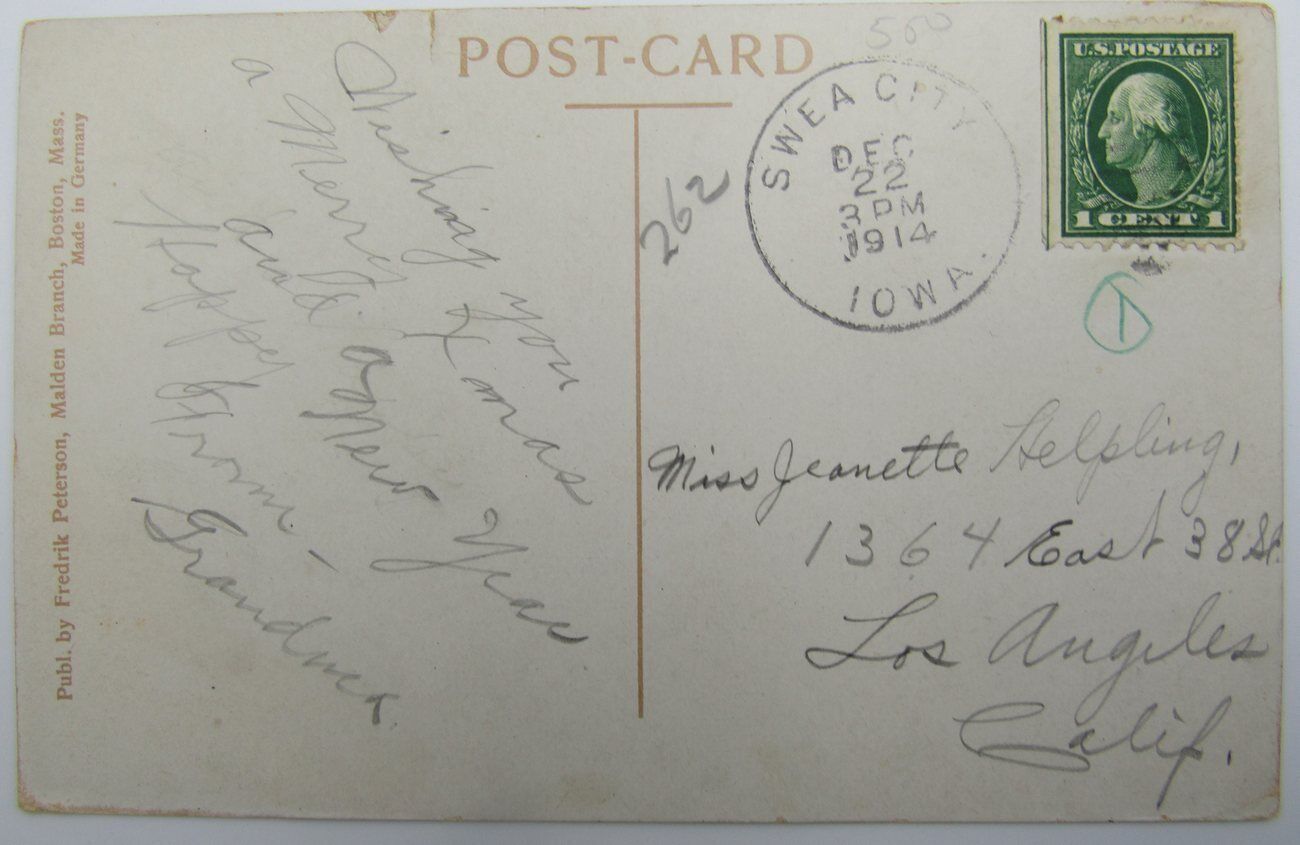 POST-CARD
550
U.S.POSTAGE
1 CENT 1
SWEA CITY
DEC
22
3 PM
1914
IOWA.
262
T
Wishing you
a Merry Xmas
and a
Happy New Year
From -
Grandma.
Miss Jeanette Helpling,
1364 East 38 St.
Los Angeles
Calif.
Publ. by Fredrik Peterson, Malden Branch, Boston, Mass.
Made in Germany